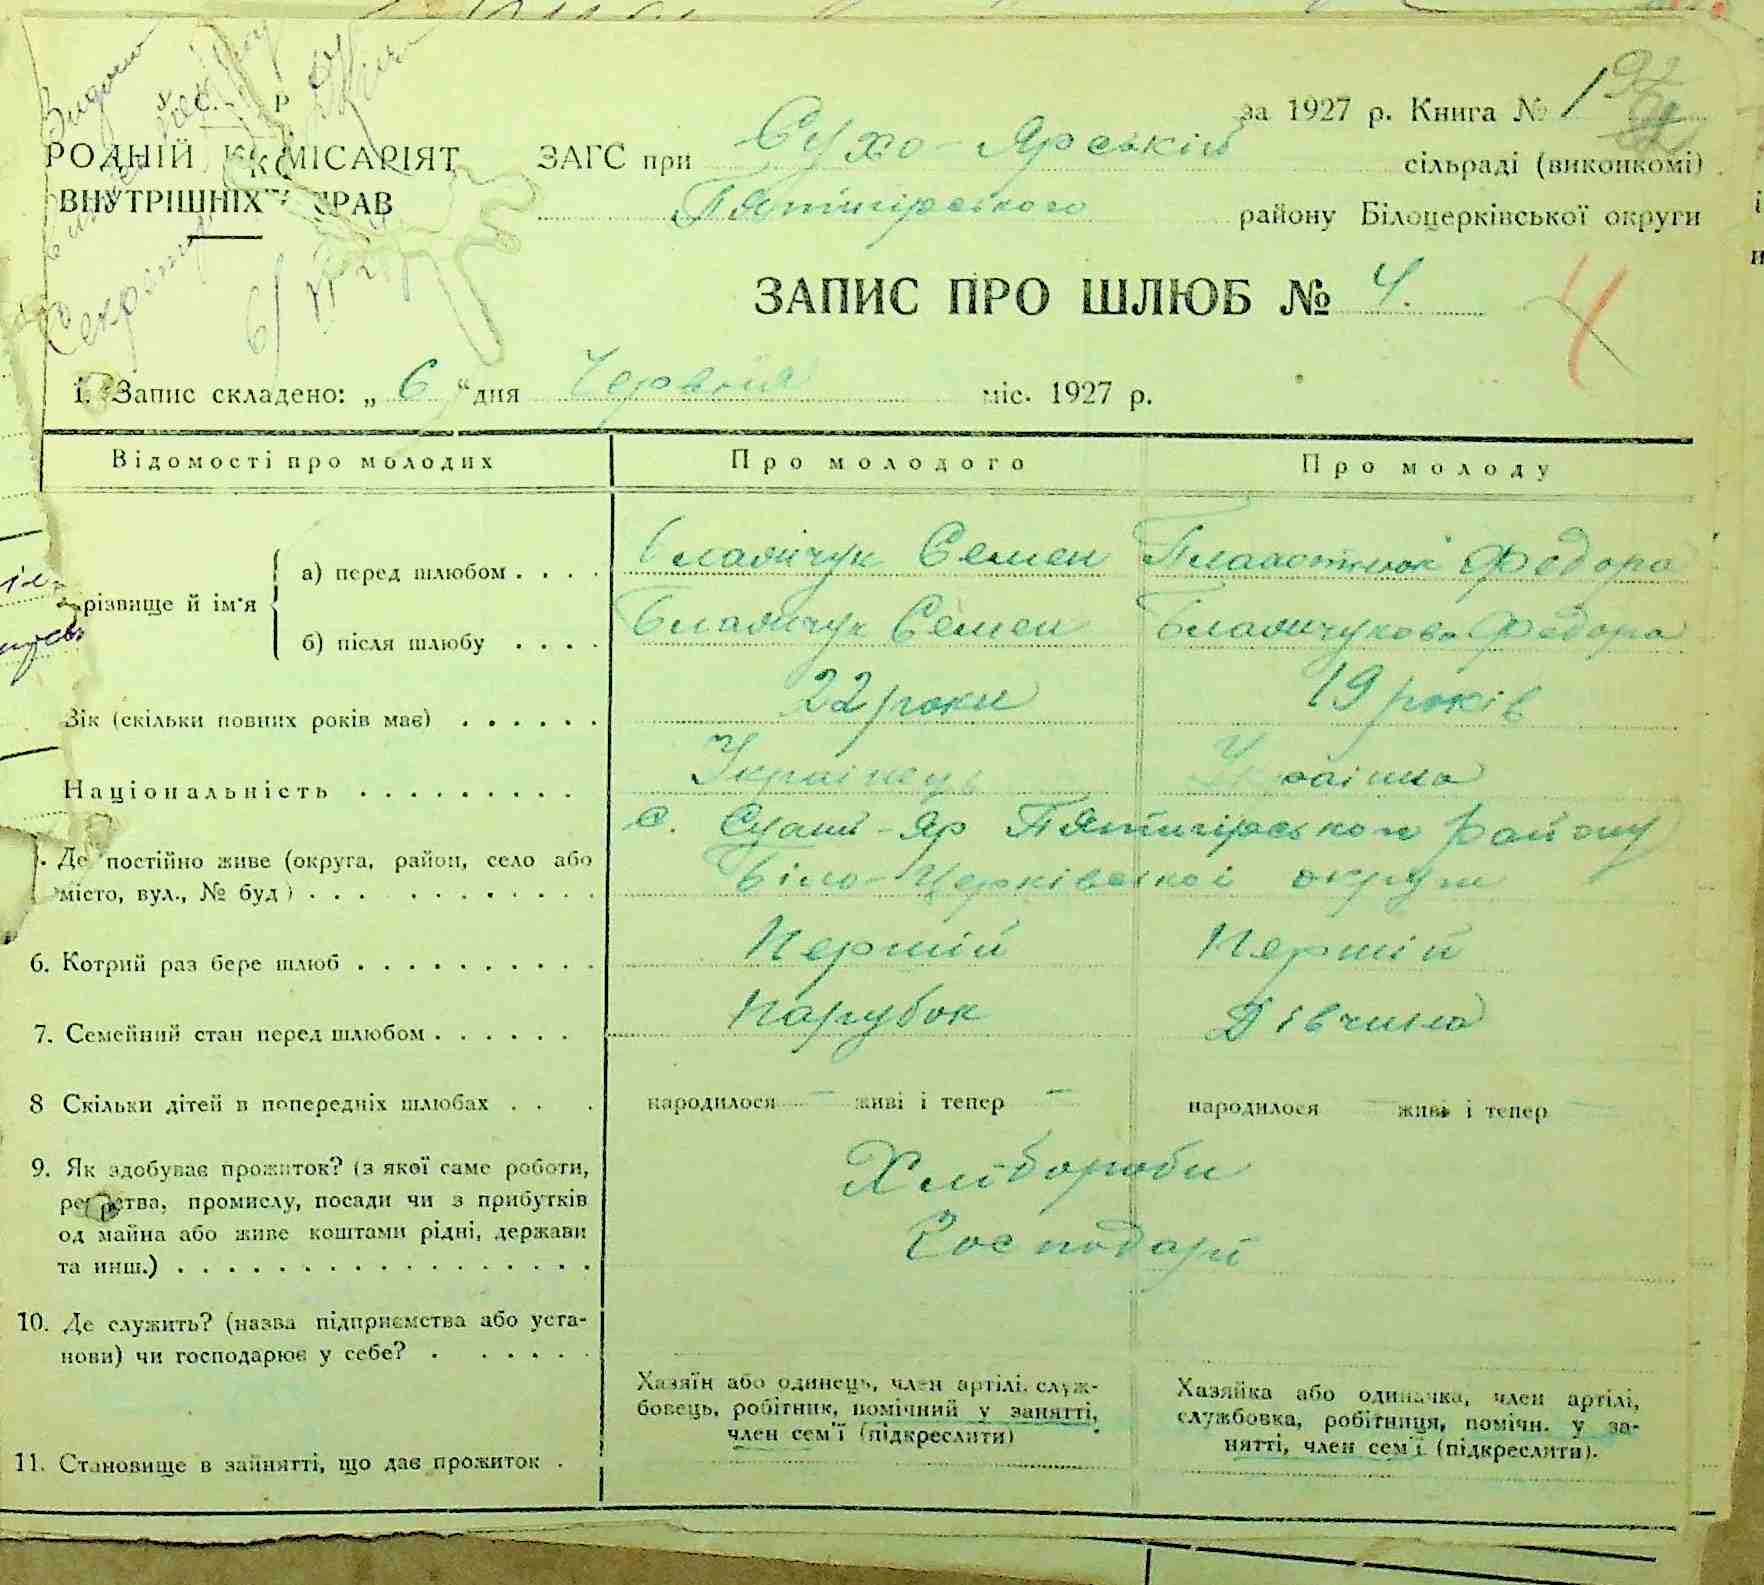 за 1927 р. Книга № 1
У.С.Р.Р
РОДНІЙ КОМІСАРІЯТ
ВНУТРІШНІХ СПРАВ
ЗАГС при Сухо-Ярській сільраді (виконкомі)
Пятигірського району Білоцерківської округи
ЗАПИС ПРО ШЛЮБ № 4.
4
1. Запис складено: „ 6 “ дня Червня міс. 1927 р.
Відомості про молодих Про молодого Про молоду
різвище й ім'я
а) перед шлюбом . . . . Семен Федора
б) після шлюбу . . . . Семен Федора
Вік (скільки повних років має) . . . . . . 22 роки 19 років
Національність . . . . . . . . . Українець Українка
Де постійно живе (округа, район, село або місто, вул., № буд) . . . . . . . . . .
с. Сухий-Яр Пятигірського району
Біло-Церківської округи
6. Котрий раз бере шлюб . . . . . . . . . . Перший Перший
7. Семейний стан перед шлюбом . . . . . . Парубок Дівчина
8 Скільки дітей в попередніх шлюбах . . . народилося — живі і тепер — народилося — живі і тепер —
9. Як здобуває прожиток? (з якої саме роботи,
ремества, промислу, посади чи з прибутків
од майна або живе коштами рідні, держави
та инш.) . . . . . . . . . . . . . . . . .
Хлібороби
Господарі
10. Де служить? (назва підприємства або уста-
нови) чи господарює у себе? . . . . . .
11. Становище в зайнятті, що дає прожиток .
Хазяїн або одинець, член артілі, служ-
бовець, робітник, помічний у занятті,
член сем'ї (підкреслити)
Хазяйка або одиначка, член артілі,
службовка, робітниця, помічн. у за-
нятті, член сем'ї (підкреслити).